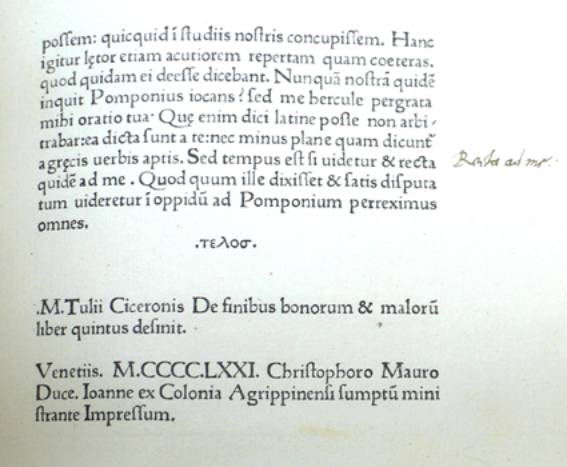 poſſem: quicquid ĩ ſtudiis noſtris concupiſſem. Hanc
igitur lęctor etiam acutiorem repertam quam coeteras.
quod quidam ei deeſſe dicebant. Nunquã noſtrã quidẽ
inquit Pomponius iocans: ſed me hercule pergrata
mihi oratio tua· Quę enim dici latine poſſe non arbi
trabar:ea dicta ſunt a te:nec minus plane quam dicunt᷑
a gręcis uerbis aptis. Sed tempus eſt ſi uidetur & recta
quidẽ ad me. Quod quum ille dixiſſet & ſatis diſputa
tum uideretur ĩ oppidũ ad Pomponium perreximus
omnes.
.τελοσ.
.M.Tulii Ciceronis De finibus bonorum & malorũ
liber quintus definit.
Venetiis. M.CCCC.LXXI. Chriſtophoro Mauro
Duce. Ioanne ex Colonia Agrippinenſi ſumptũ mini
ſtrante Impreſſum.
Recta ad me.